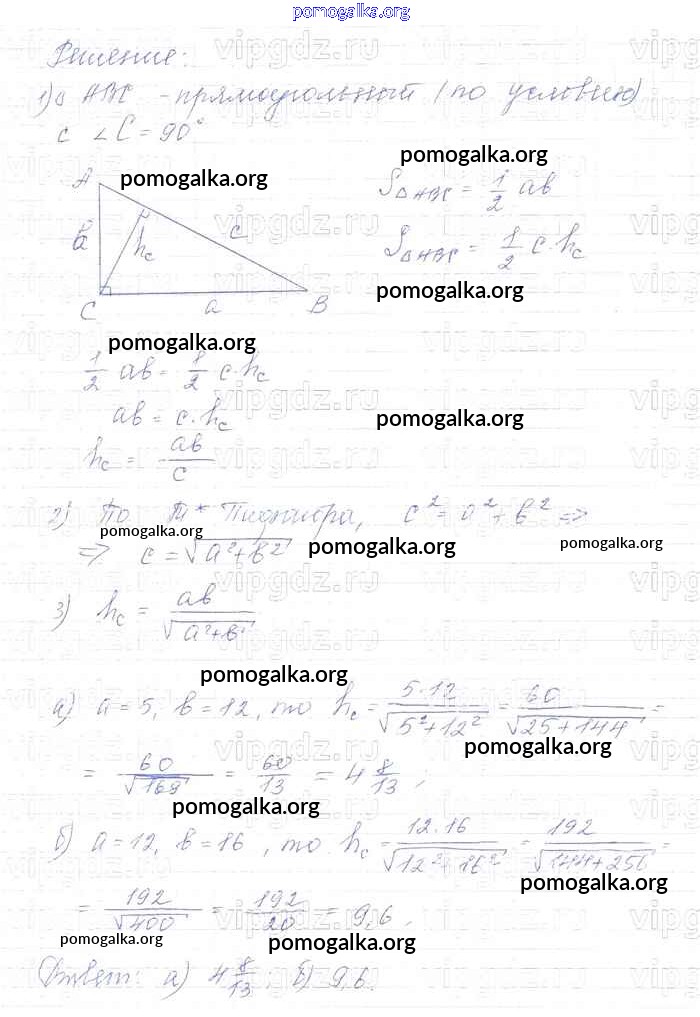 pomogalka.org
Решение:
1) △ ABC - прямоугольный (по условию)
с ∠C = 90°
pomogalka.org
pomogalka.org
A
S△ABC = 1/2 ab
в
hc
c
S△ABC = 1/2 c·hc
C
a
B
pomogalka.org
pomogalka.org
1/2 ab = 1/2 c·hc
ab = c·hc
pomogalka.org
hc = ab/c
2) По т* Пифагора, c² = a² + в² =>
pomogalka.org
=> c = √(a²+в²)
pomogalka.org
pomogalka.org
3) hc = ab/√(a²+в²)
pomogalka.org
а) a = 5, в = 12, то hc = 5·12/√(5²+12²) = 60/√(25+144) =
pomogalka.org
= 60/√169 = 60/13 = 4 8/13;
pomogalka.org
б) a = 12, в = 16, то hc = 12·16/√(12²+16²) = 192/√(144+256) =
pomogalka.org
= 192/√400 = 192/20 = 9,6.
pomogalka.org
pomogalka.org
Ответ: а) 4 8/13; б) 9,6.